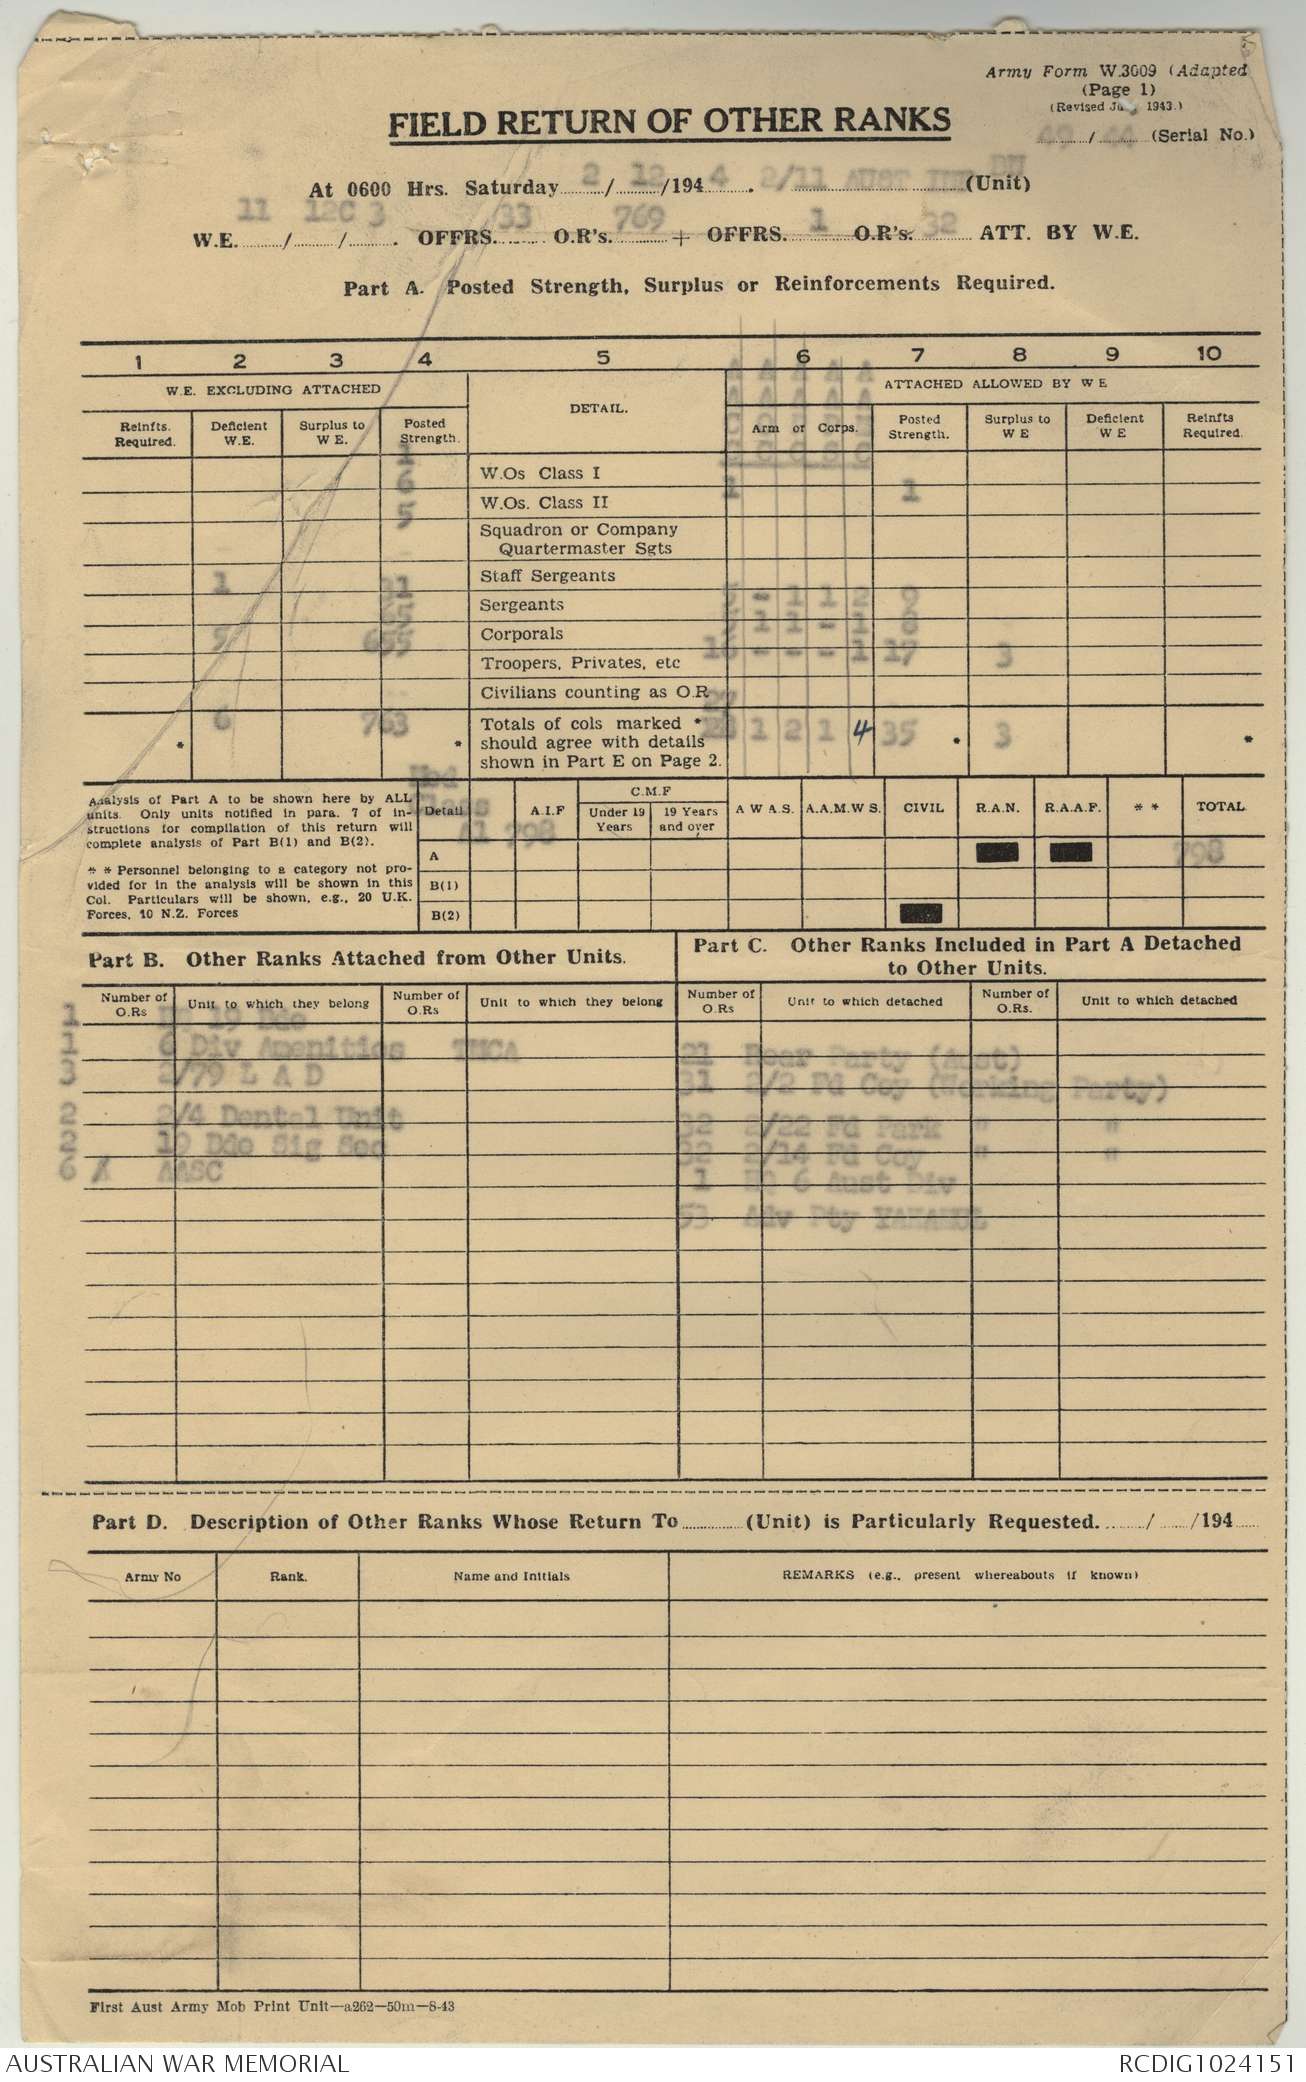 Army Form W.3009 (Adapted
(Page 1)
(Revised Ju 1943.)
FIELD RETURN OF OTHER RANKS
49 / 44 (Serial No.)
At 0600 Hrs. Saturday 2 / 12 /194 4 . 2/11 AUST INF BN (Unit)
W.E. 11 / 12C / 3 . OFFRS. 33 O.R's. 769 + OFFRS. 1 O.R's. 32 ATT. BY W.E.
Part A. Posted Strength, Surplus or Reinforcements Required.
1 2 3 4 5 6 7 8 9 10
W.E. EXCLUDING ATTACHED
DETAIL.
ATTACHED ALLOWED BY W E
Reinfts. Required. Deficient W.E. Surplus to W E. Posted Strength.
Arm or Corps. Posted Strength. Surplus to W E Deficient W E Reinfts Required.
W.Os Class I
6 W.Os. Class II 1 1
5 Squadron or Company
Quartermaster Sgts
1 31 Staff Sergeants
65 Sergeants - 1 1 2 9
5 655 Corporals 1 1 - 1 8
Troopers, Privates, etc 16 - - - 1 17 3
Civilians counting as O.R
6 763 Totals of cols marked * 1 2 1 4 35 3
* * should agree with details * *
shown in Part E on Page 2.
Analysis of Part A to be shown here by ALL
units. Only units notified in para. 7 of in-
structions for compilation of this return will
complete analysis of Part B(1) and B(2).
* * Personnel belonging to a category not pro-
vided for in the analysis will be shown in this
Col. Particulars will be shown, e.g., 20 U.K.
Forces, 10 N.Z. Forces
Med
Class
A1 798 798
Detail A.I.F C.M.F Under 19 Years 19 Years and over A W A.S. A.A.M.W S. CIVIL R.A.N. R.A.A.F. * * TOTAL
A
B(1)
B(2)
Part B. Other Ranks Attached from Other Units.
Part C. Other Ranks Included in Part A Detached
to Other Units.
Number of O.Rs Unit to which they belong Number of O.Rs Unit to which they belong Number of O.Rs Unit to which detached Number of O.Rs. Unit to which detached
1 19 Bde
1 6 Div Amenities YMCA 21 Rear Party (Aust)
3 2/79 L A D 31 2/2 Fd Coy (Working Party)
2 2/4 Dental Unit 32 2/22 Fd Park " "
2 19 Bde Sig Sec 32 2/14 Fd Coy " "
6 X AASC 1 HQ 6 Aust Div
53 Adv Pty YAKAMUL
Part D. Description of Other Ranks Whose Return To (Unit) is Particularly Requested. / /194
Army No Rank. Name and Initials REMARKS (e.g., present whereabouts if known)
First Aust Army Mob Print Unit—a262—50m—8-43
AUSTRALIAN WAR MEMORIAL RCDIG1024151